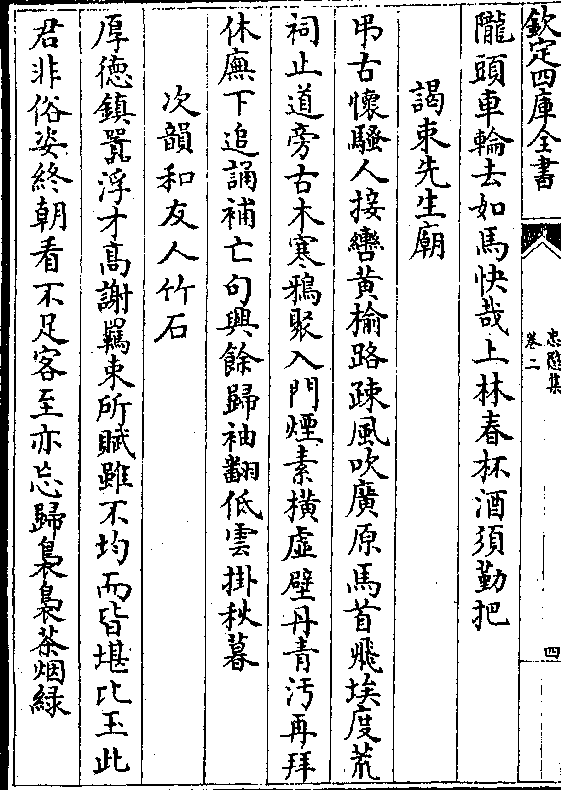 欽定四庫全書
忠隱集
卷二
四
隴頭車輪去如馬快哉上林春杯酒須勤把
謁束先生廟
弔古懷騷人接轡黃榆路疎風吹廣原馬首飛埃度荒
祠止道旁古木寒鴉聚入門煙素橫虛壁丹青汚再拜
休廡下追誦補亡句興餘歸袖翻低雲掛秋暮
次韻和友人竹石
厚德鎮囂浮才高謝羈束所賦雖不均而皆堪比玉此
君非俗姿終朝看不足客至亦忘歸裊裊茶烟緑